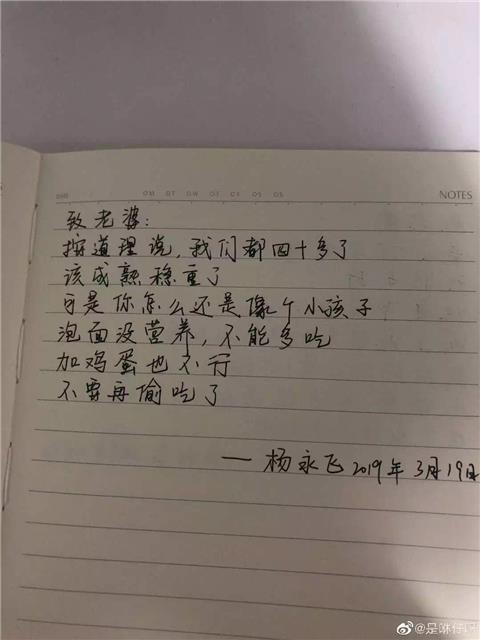 DATE
NOTES
致老婆：
按道理说，我们都四十多了
该成熟稳重了
可是你怎么还是像个小孩子
泡面没营养，不能多吃
加鸡蛋也不行
不要再偷吃了
— 杨永飞 2019年3月19日